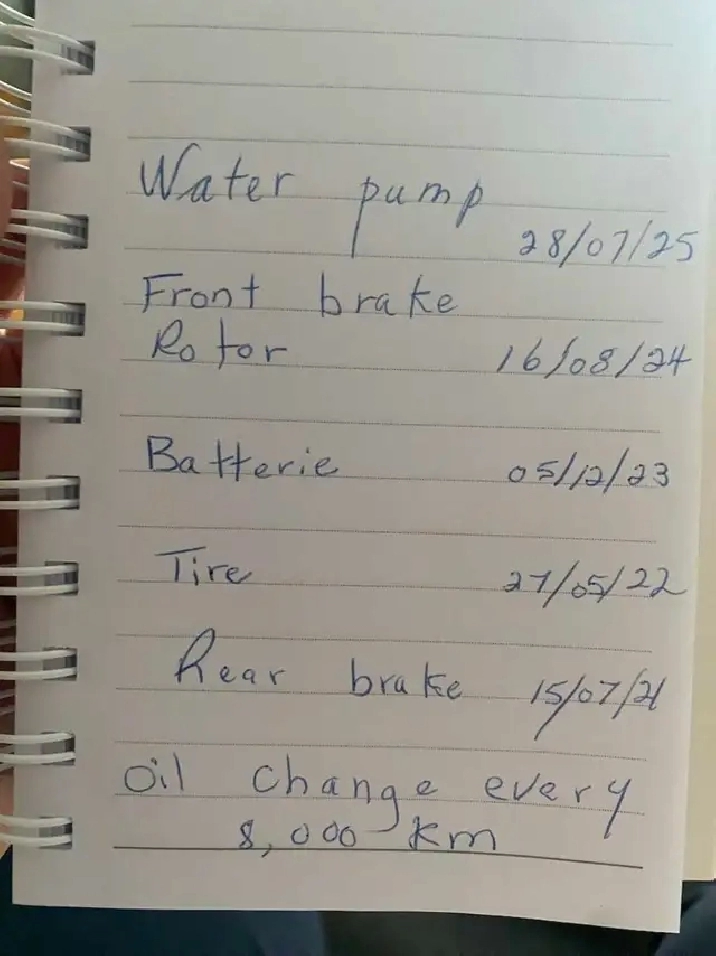 Water pump
28/07/25
Front brake
Rotor 16/08/24
Batterie 05/12/23
Tire 27/05/22
Rear brake 15/07/21
Oil change every
8,000 km